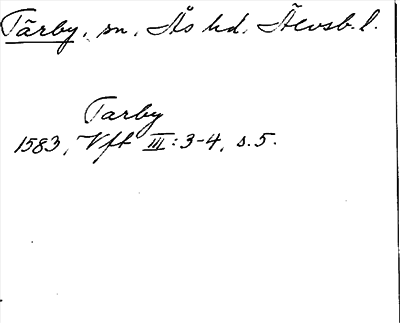 Tärby, sn, Ås hd, Älvsb. l.
Tarby
1583, Vft III: 3-4, s. 5.